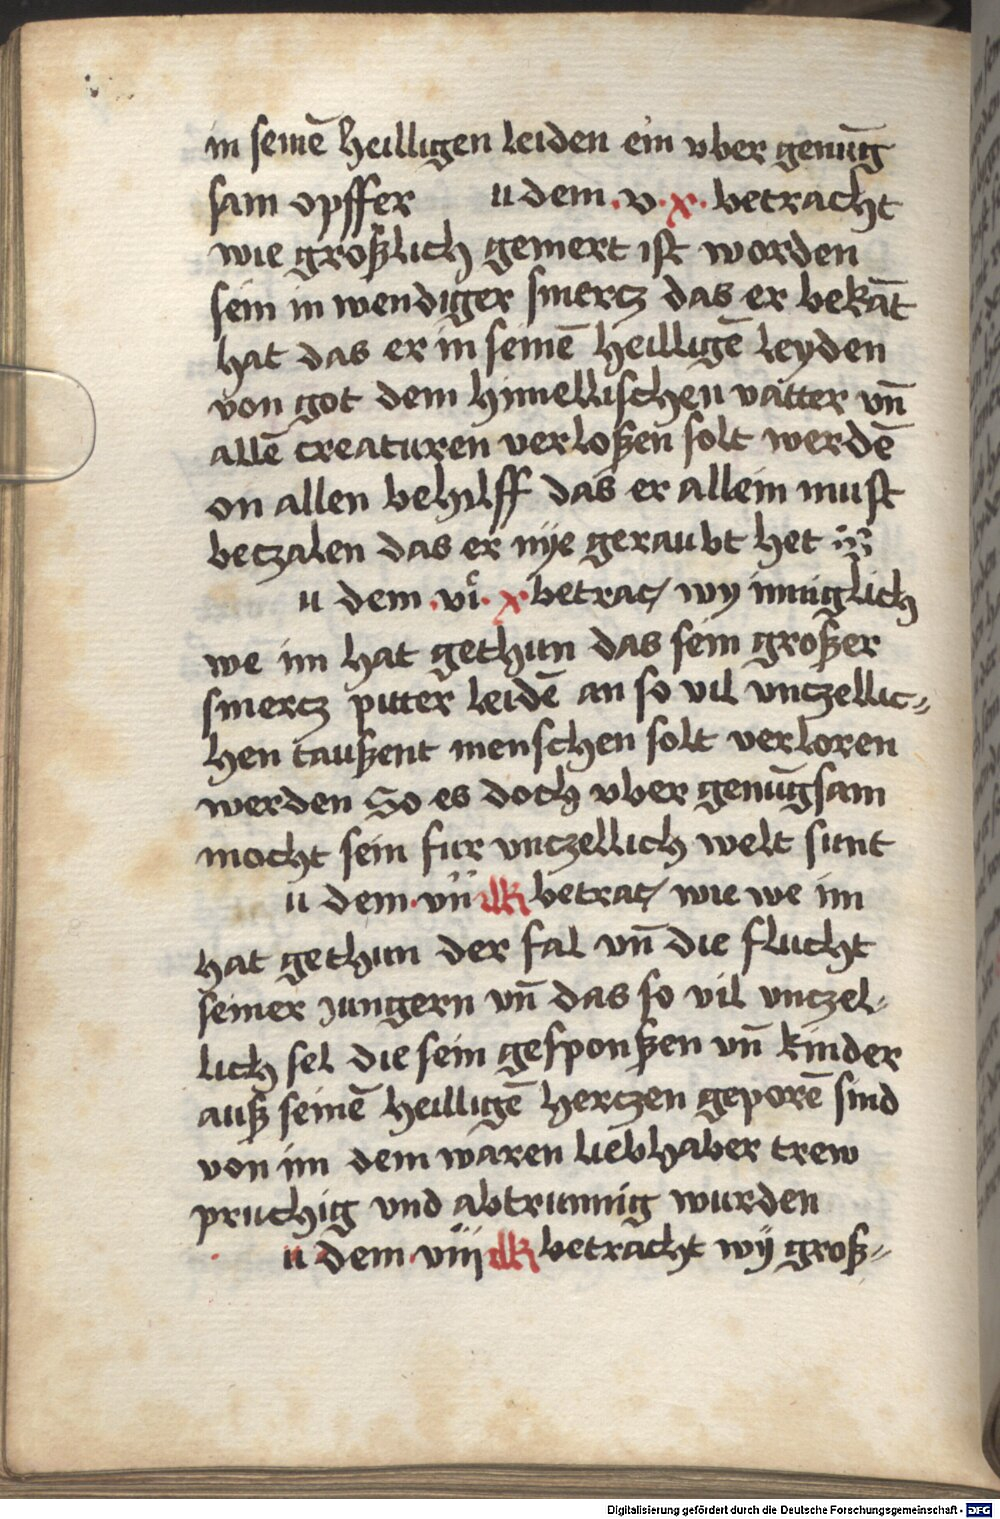 in seinē heilligen leiden ein vber genūg
sam opffer u dem .v. x. betracht
wie großlich gemert ist worden
sein in wendiger smercz das er bekāt
hat das er in seinē heilligē leyden
von got dem himellischen vatter vn̄
allē creaturen verloßen solt werdē
on allen behilff das er allein must
beczalen das er nÿe geraubt het
u dem .vi. x betrac/ wy inniglich
we im hat gethun das sein großer
smercz pitter leidē an so vil vnczellic⸗
hen taußent menschen solt verloren
werden So es doch vber genūgsam
mocht sein fur vnczellich welt sunt
u dem .vii betrac/ wie we im
hat gethun der fal vn̄ die flucht
seiner jungern vn̄ das so vil vnczel⸗
lich sel die sein gesponßen vn̄ kinder
auß seinē heilligē herczen geporē sind
von im dem waren liebhaber trew
pruchig vnd abtrunnig wurden
u dem .viij betracht wÿ groß⸗
Digitalisierung gefördert durch die Deutsche Forschungsgemeinschaft - DFG